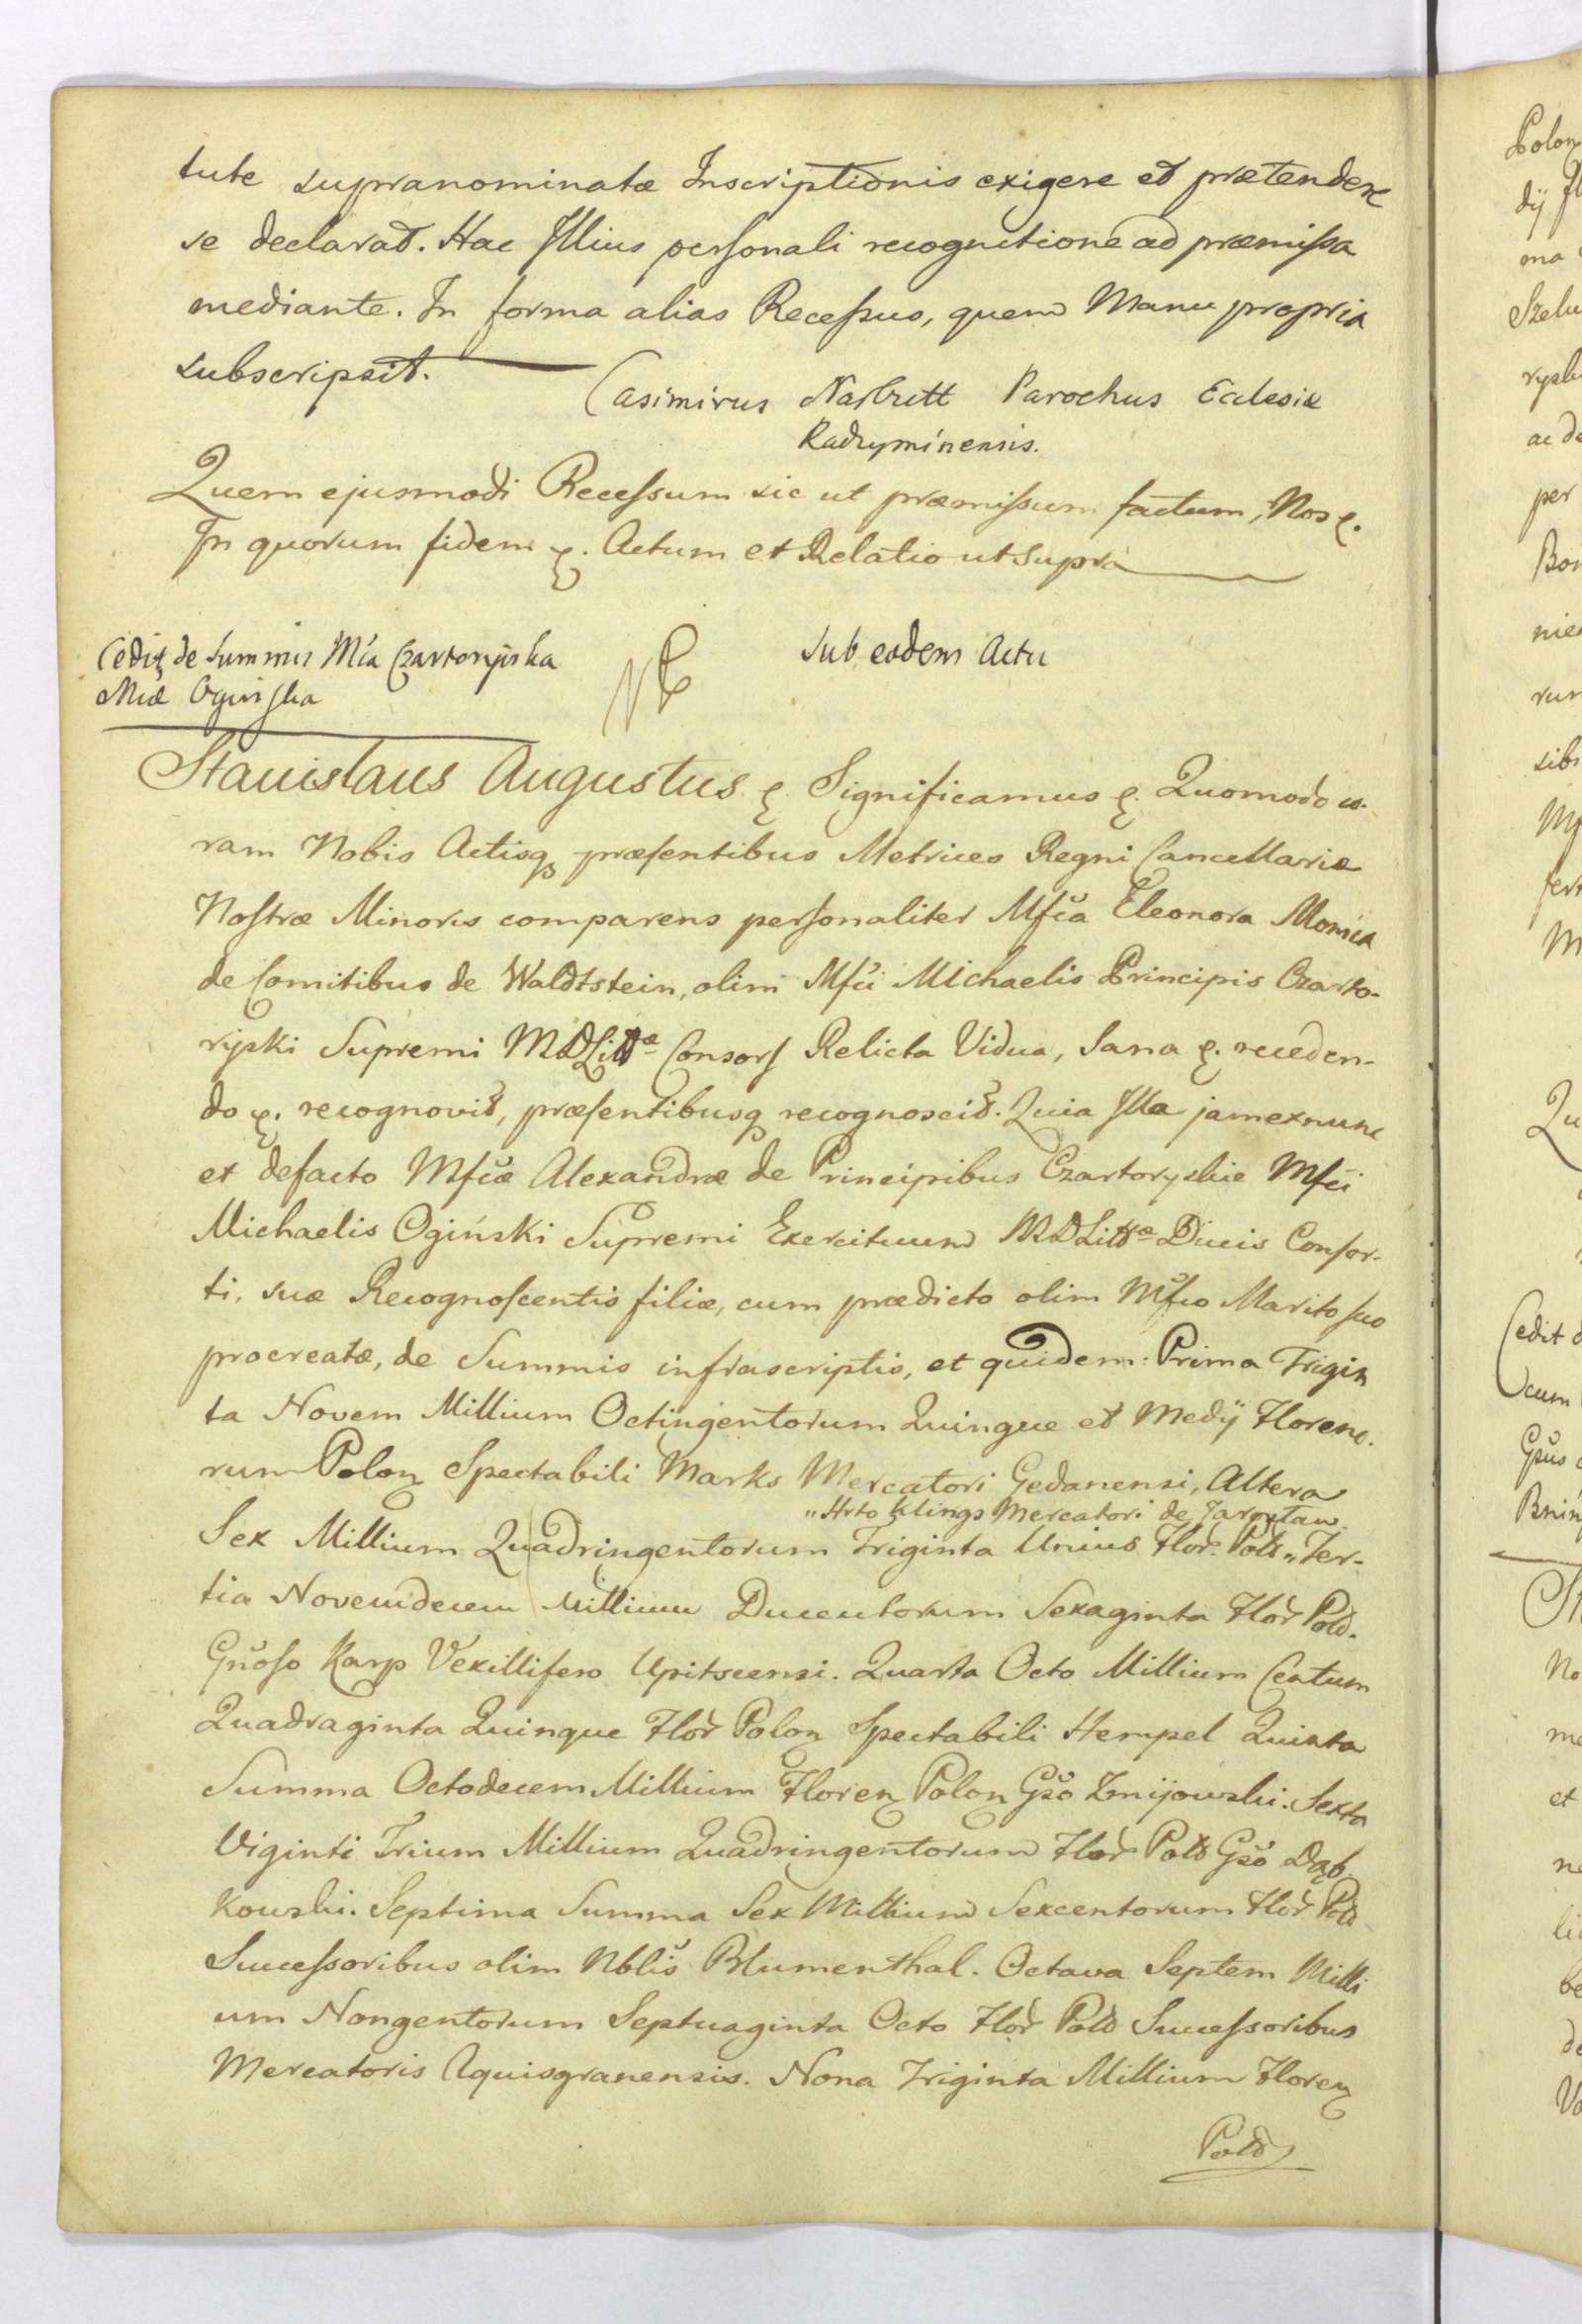 tute supranominatæ Inscriptionis exigere et prætendere
se declarat. Hac Illius personali recognitione ad præmissa
mediante. In forma alias Recessus, quem Manu propria
subscripsit.
Casimirus Narbutt Parochus Ecclesiæ
Radzyminensis.
Quem ejusmodi Recessum sic ut præmissum factum, Nos &.
In quorum fidem &. Actum et Relatio ut supra
Cedit de Summis Mfca Czartoryiska
Mfcæ Oginska
Sub eodem Actu
Stanislaus Augustus &. Significamus &. Quomodo co-
ram Nobis Actisq præsentibus Metrices Regni Cancellariæ
Nostræ Minoris comparens personaliter Mfca Eleonora Monica
de Comitibus de Waldtstein, olim Mfci Michaelis Principis Czarto-
ryski Supremi MDLittæ Consors Relicta Vidua, Sana &. receden-
do &. recognovit, præsentibusq recognoscit. Quia Illa jam ex nunc
et defacto Mfcæ Alexandræ de Principibus Czartoryskie Mfci
Michaelis Ogiński Supremi Exercituum MDLittæ Ducis Consor-
ti, suæ Recognoscentis filiæ, cum prædicto olim Mfco Marito suo
procreatæ, de Summis infrascriptis, et quidem: Prima Trigin
ta Novem Millium Octingentorum Quinque et Medij Floreno-
rum Polon Spectabili Marks Mercatori Gedanensi, Altera
„Hrto Klings Mercatori de
Sex Millium Quadringentorum Triginta Unius Flor. Pold „ Ter-
tia Novemdecem Millium Ducentorum Sexaginta Flor Pold.
Gnoso Karp Vexillifero Upitscensi. Quarta Octo Millium Centum
Quadraginta Quinque Flor Polon Spectabili Hempel Quinta
Summa Octodecem Millium Floren Polon Gso Zmijowski. Sexta
Viginti Trium Millium Quadringentorum Flor Pold Gso Dąb
kowski. Septima Summa Sex Millium Sexcentorum Flor Pold
Successoribus olim Nblis Blumenthal. Octava Septem Milli
um Nongentorum Septuaginta Octo Flor Pold Successoribus
Mercatoris Aquisgranensis. Nona Triginta Millium Floren
Pold